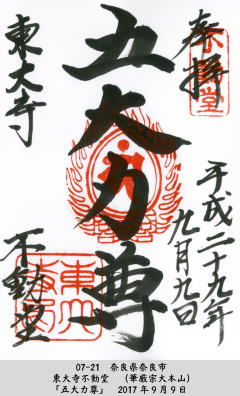 奉拝
平成二十九年
九月九日
五大力尊
東大寺
不動堂
07-21 奈良県奈良市
東大寺不動堂 （華厳宗大本山）
「五大力尊」 2017年9月9日